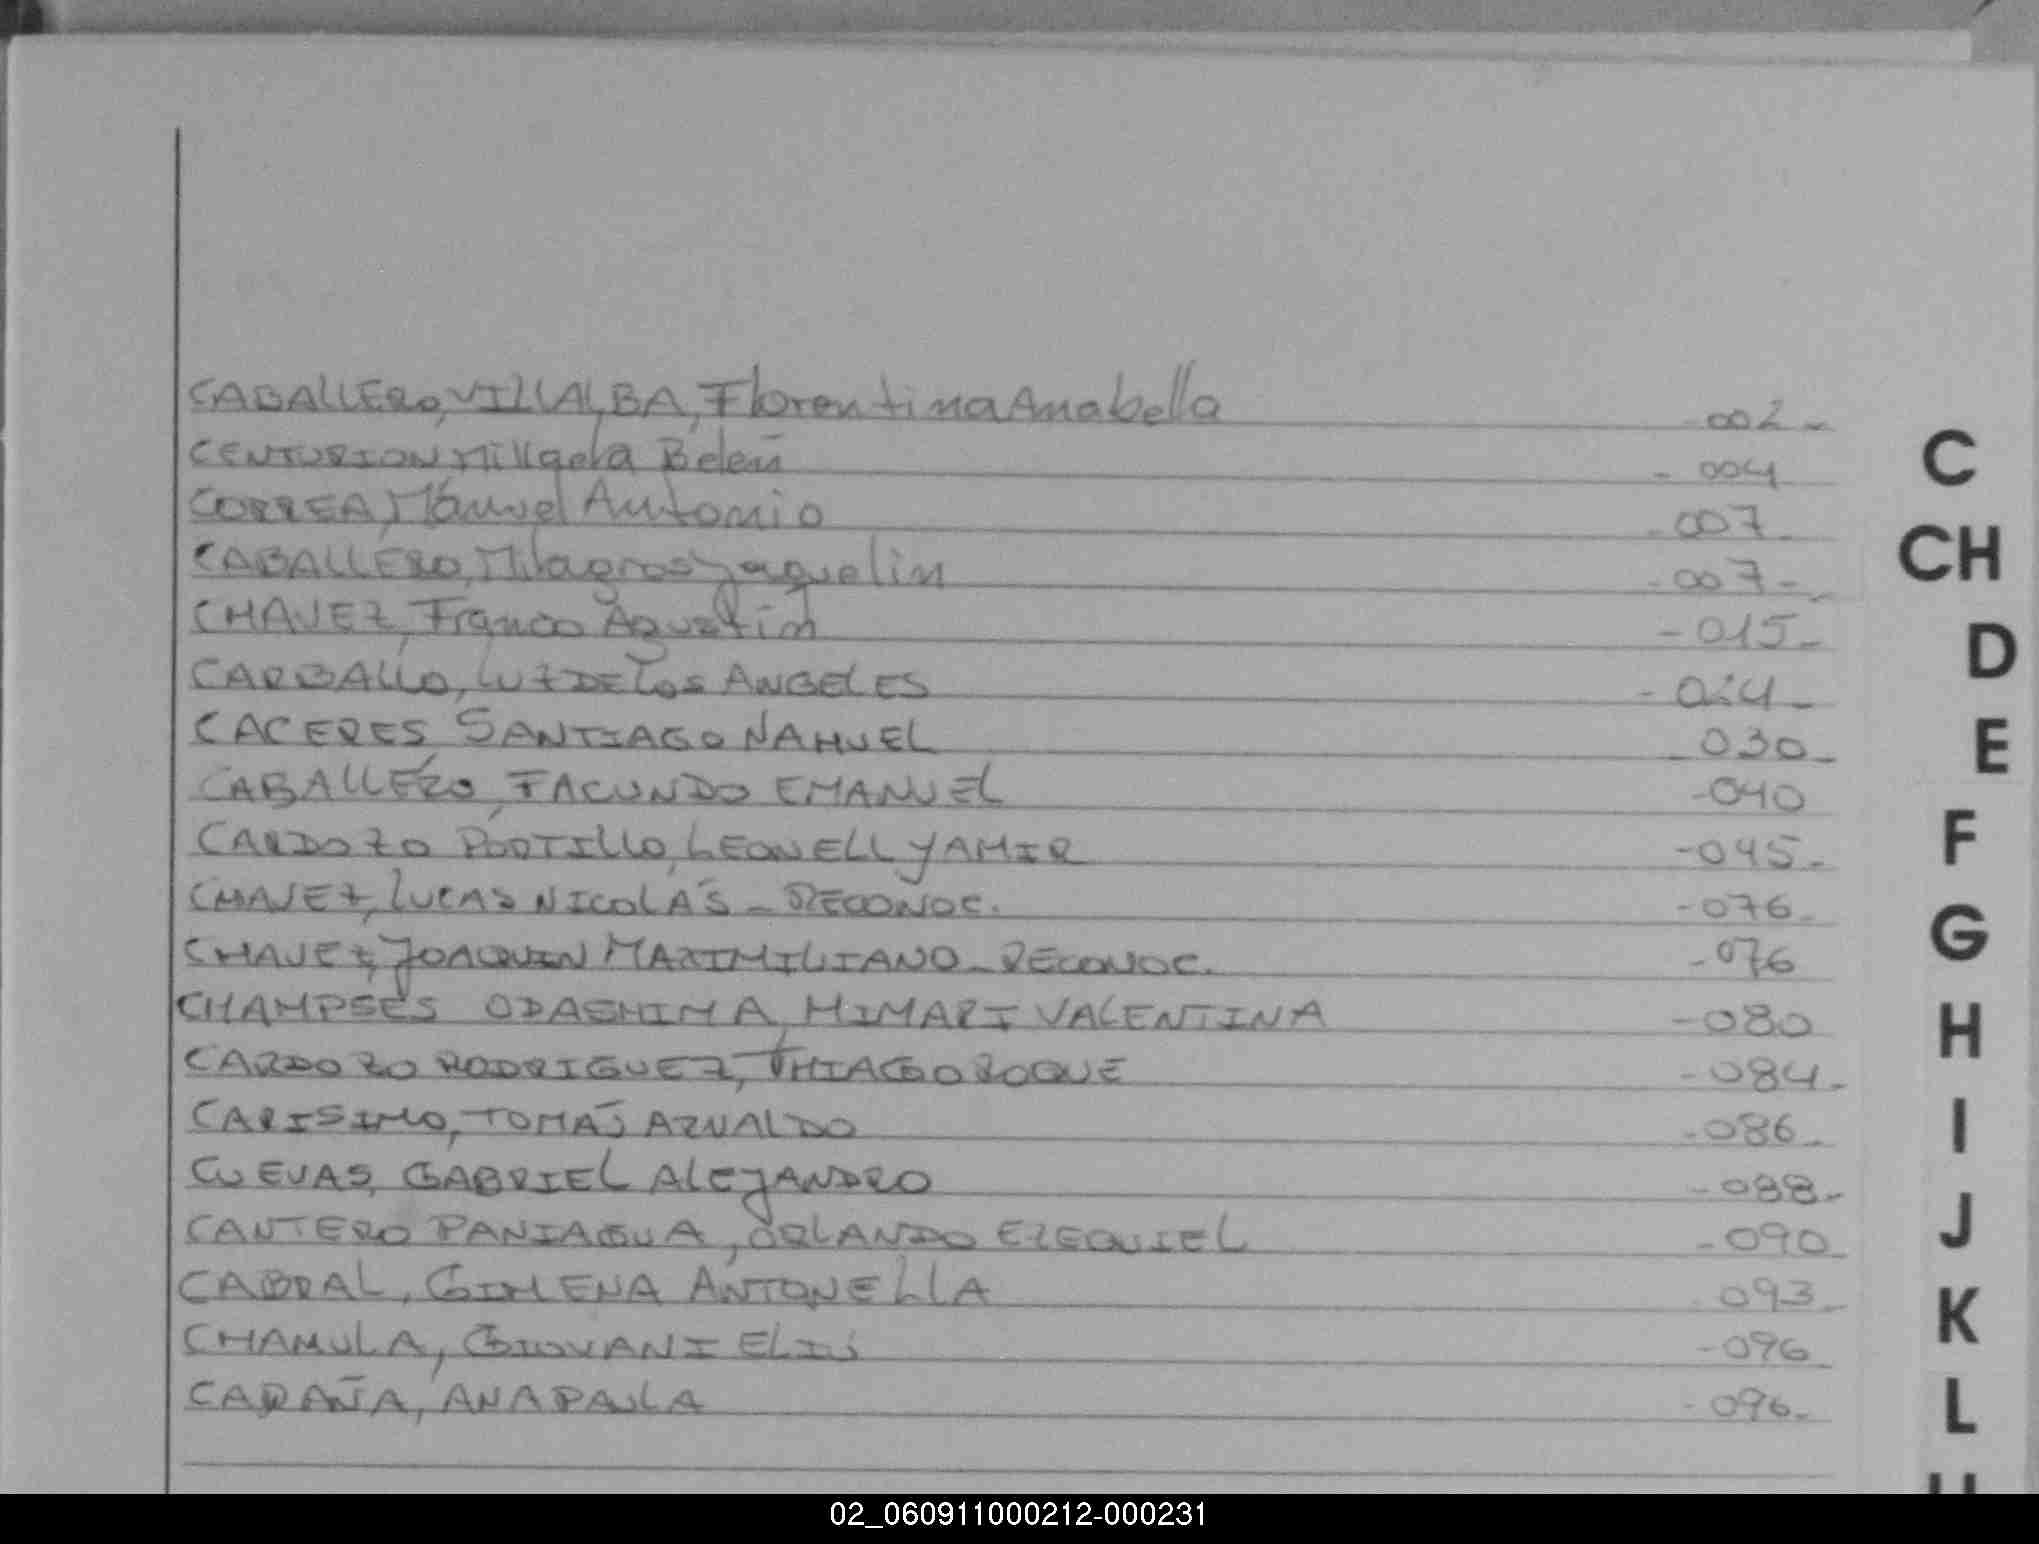 CABALLERO, VILLALBA, Florentina Anabella -002-
CENTURION, Milqgela Belén - 004
CORREA, Manuel Antonio - 007 -
CABALLERO, Milagros Jaquelin - 007 -
CHAVEZ, Franco Agustín - 015 -
CARBALLO, LUZ DE LOS ANGELES - 024 -
CACERES, SANTIAGO NAHUEL - 030 -
CABALLERO, FACUNDO EMANUEL - 040
CARDOZO PORTILLO, LEONELL YAMIR - 045 -
CHAVEZ, LUCAS NICOLÁS - RECONOC. - 076 -
CHAVEZ, JOAQUIN MAXIMILIANO - RECONOC. - 076
CHAMPSES ODASHIMA, HIMARI VALENTINA - 080
CARDOZO RODRIGUEZ, THIAGO ROQUE - 084 -
CARISIMO, TOMÁS ARNALDO - 086 -
CUEVAS, GABRIEL ALEJANDRO - 088 -
CANTERO PANIAGUA, ORLANDO EZEQUIEL - 090 -
CABRAL, GIMENA ANTONELLA - 093 -
CHAMULA, GIOVANI - 096 -
CARAÑA, ANA PAULA - 096 -
C
CH
D
E
F
G
H
I
J
K
L
02_060911000212-000231